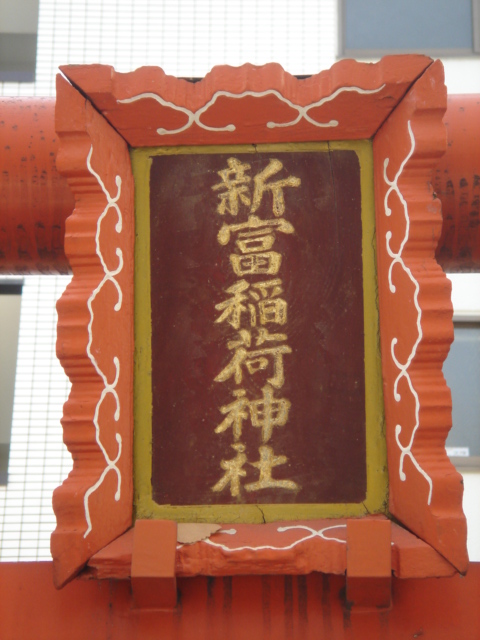 新富稲荷神社